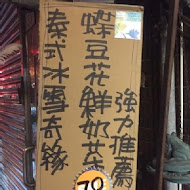 強力推薦
蝶豆花鮮奶茶
泰式冰雪奇緣
70